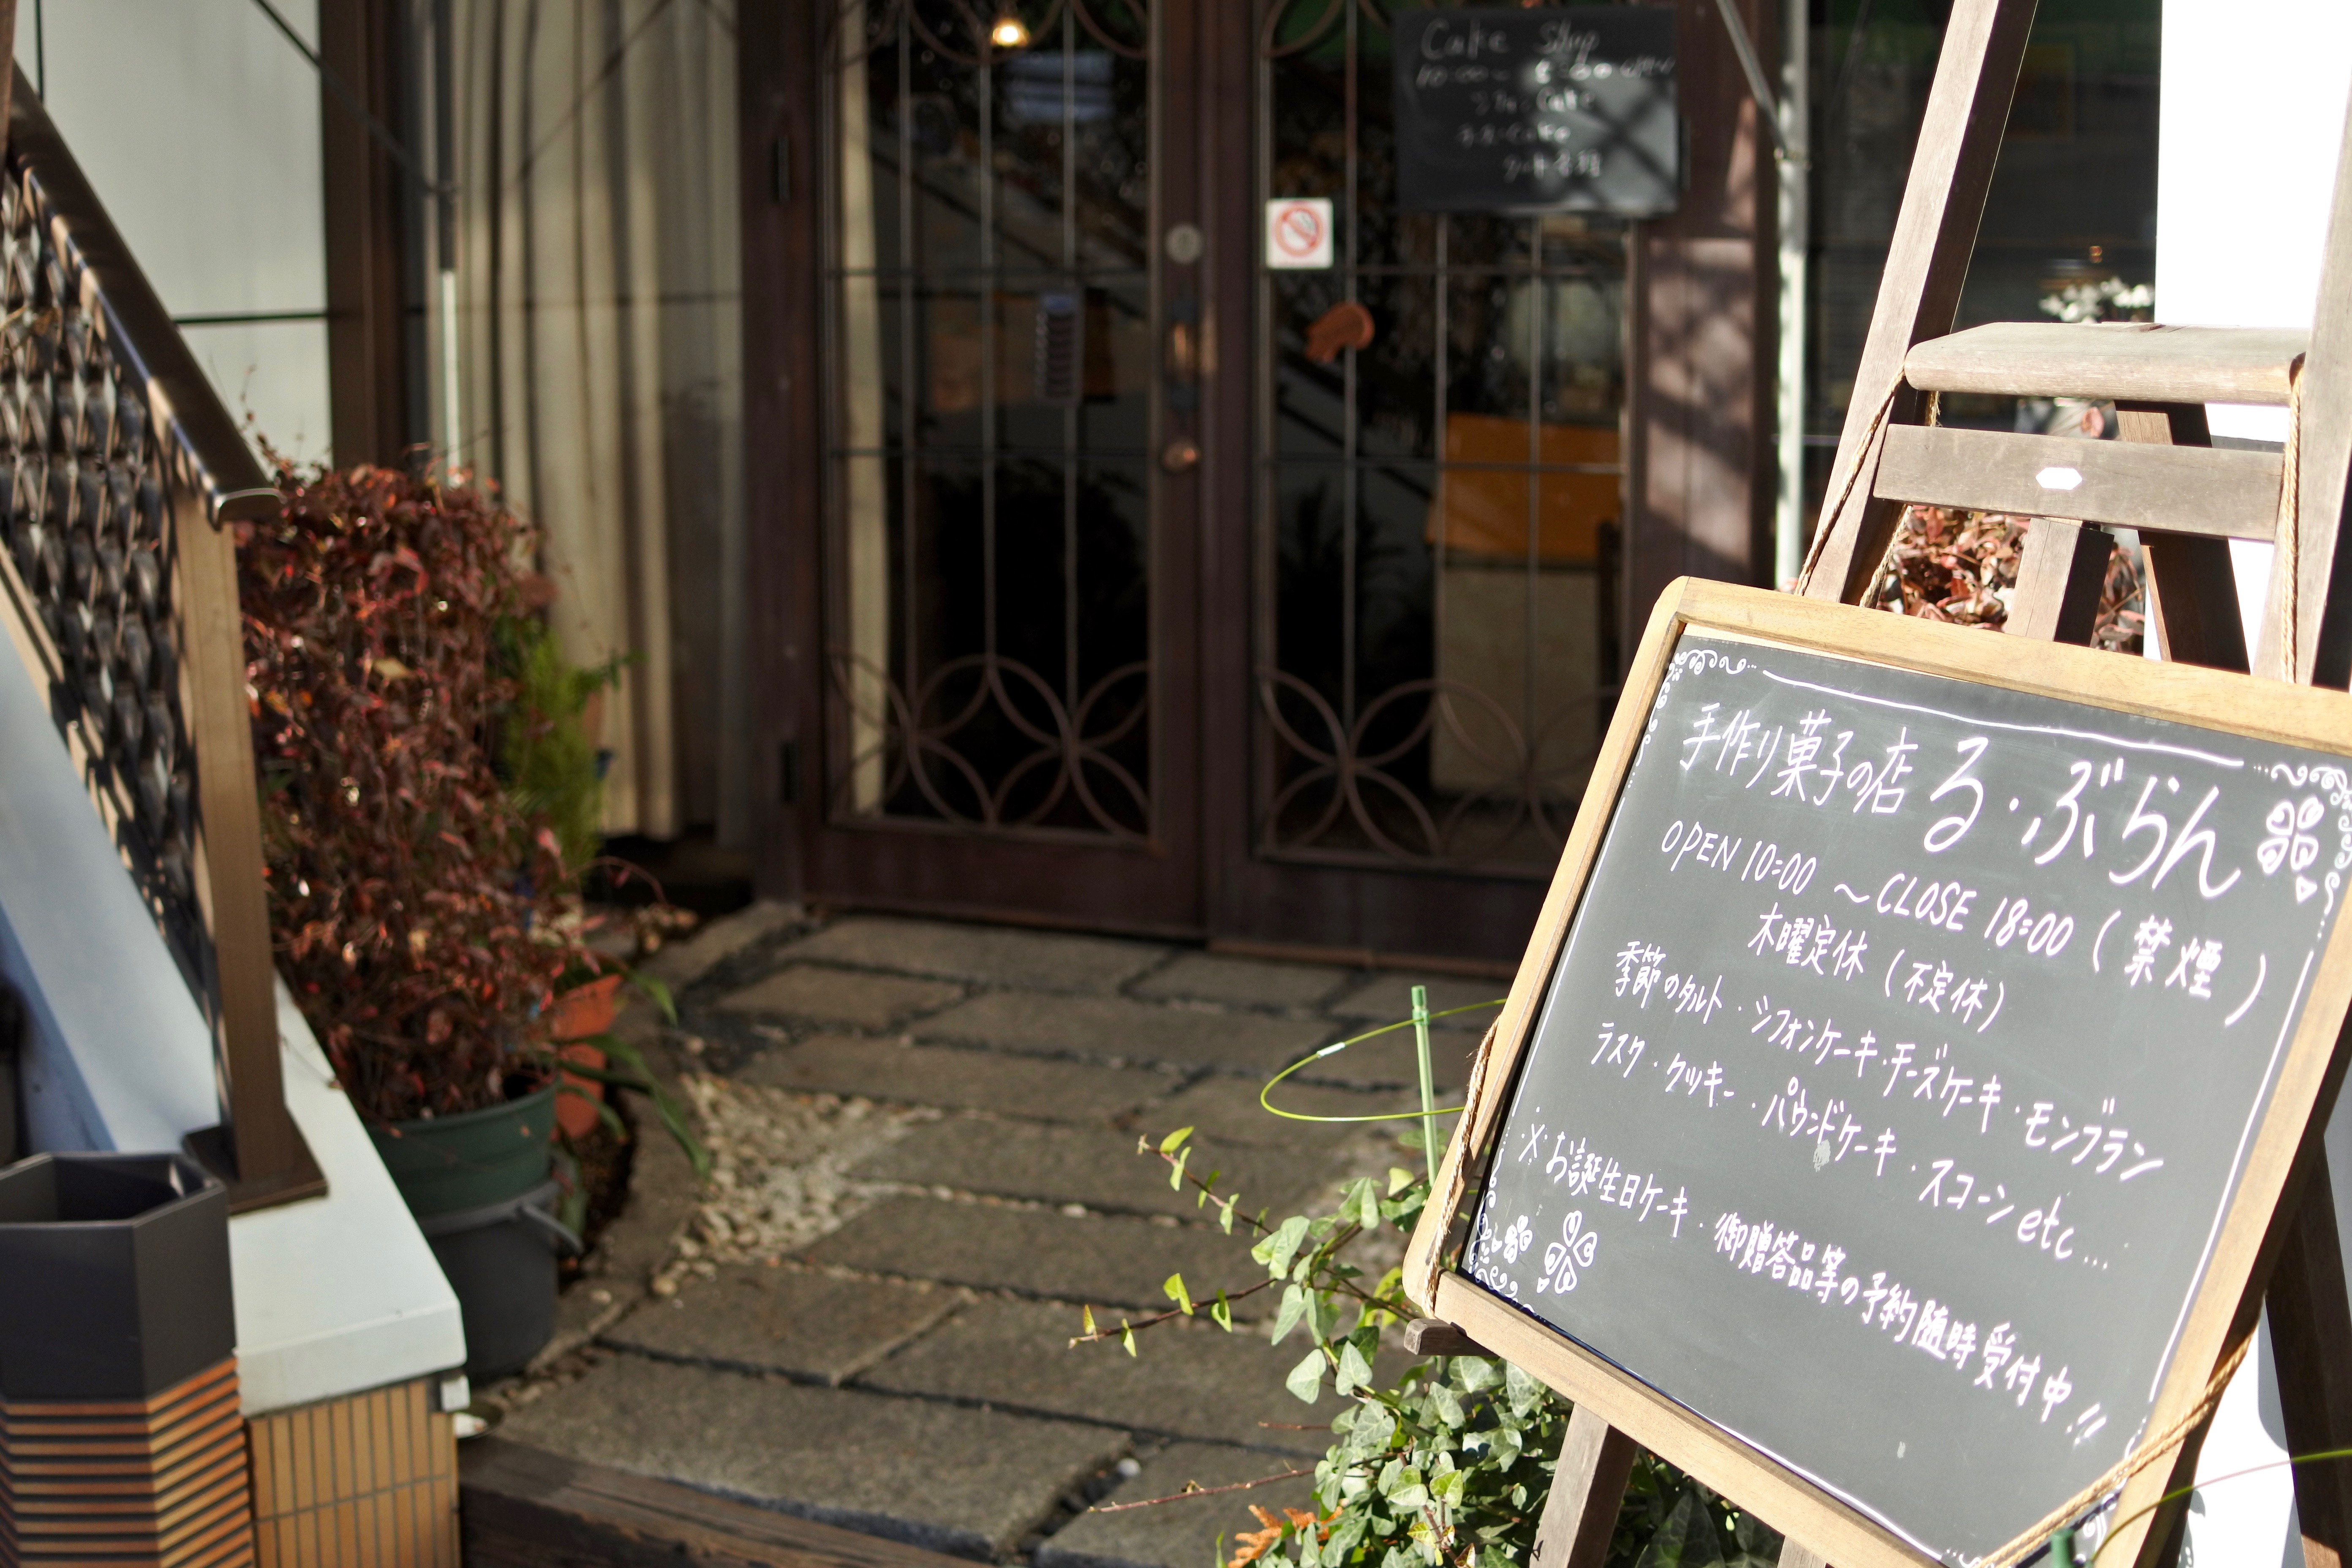 Cake Shop
手作り菓子の店 る・ぶらん
OPEN 10:00 〜 CLOSE 18:00 (禁煙)
木曜定休 (不定休)
季節のタルト・シフォンケーキ・チーズケーキ・モンブラン
ラスク・クッキー・パウンドケーキ・スコーン etc...
※お誕生日ケーキ・御贈答品等の予約随時受付中!!